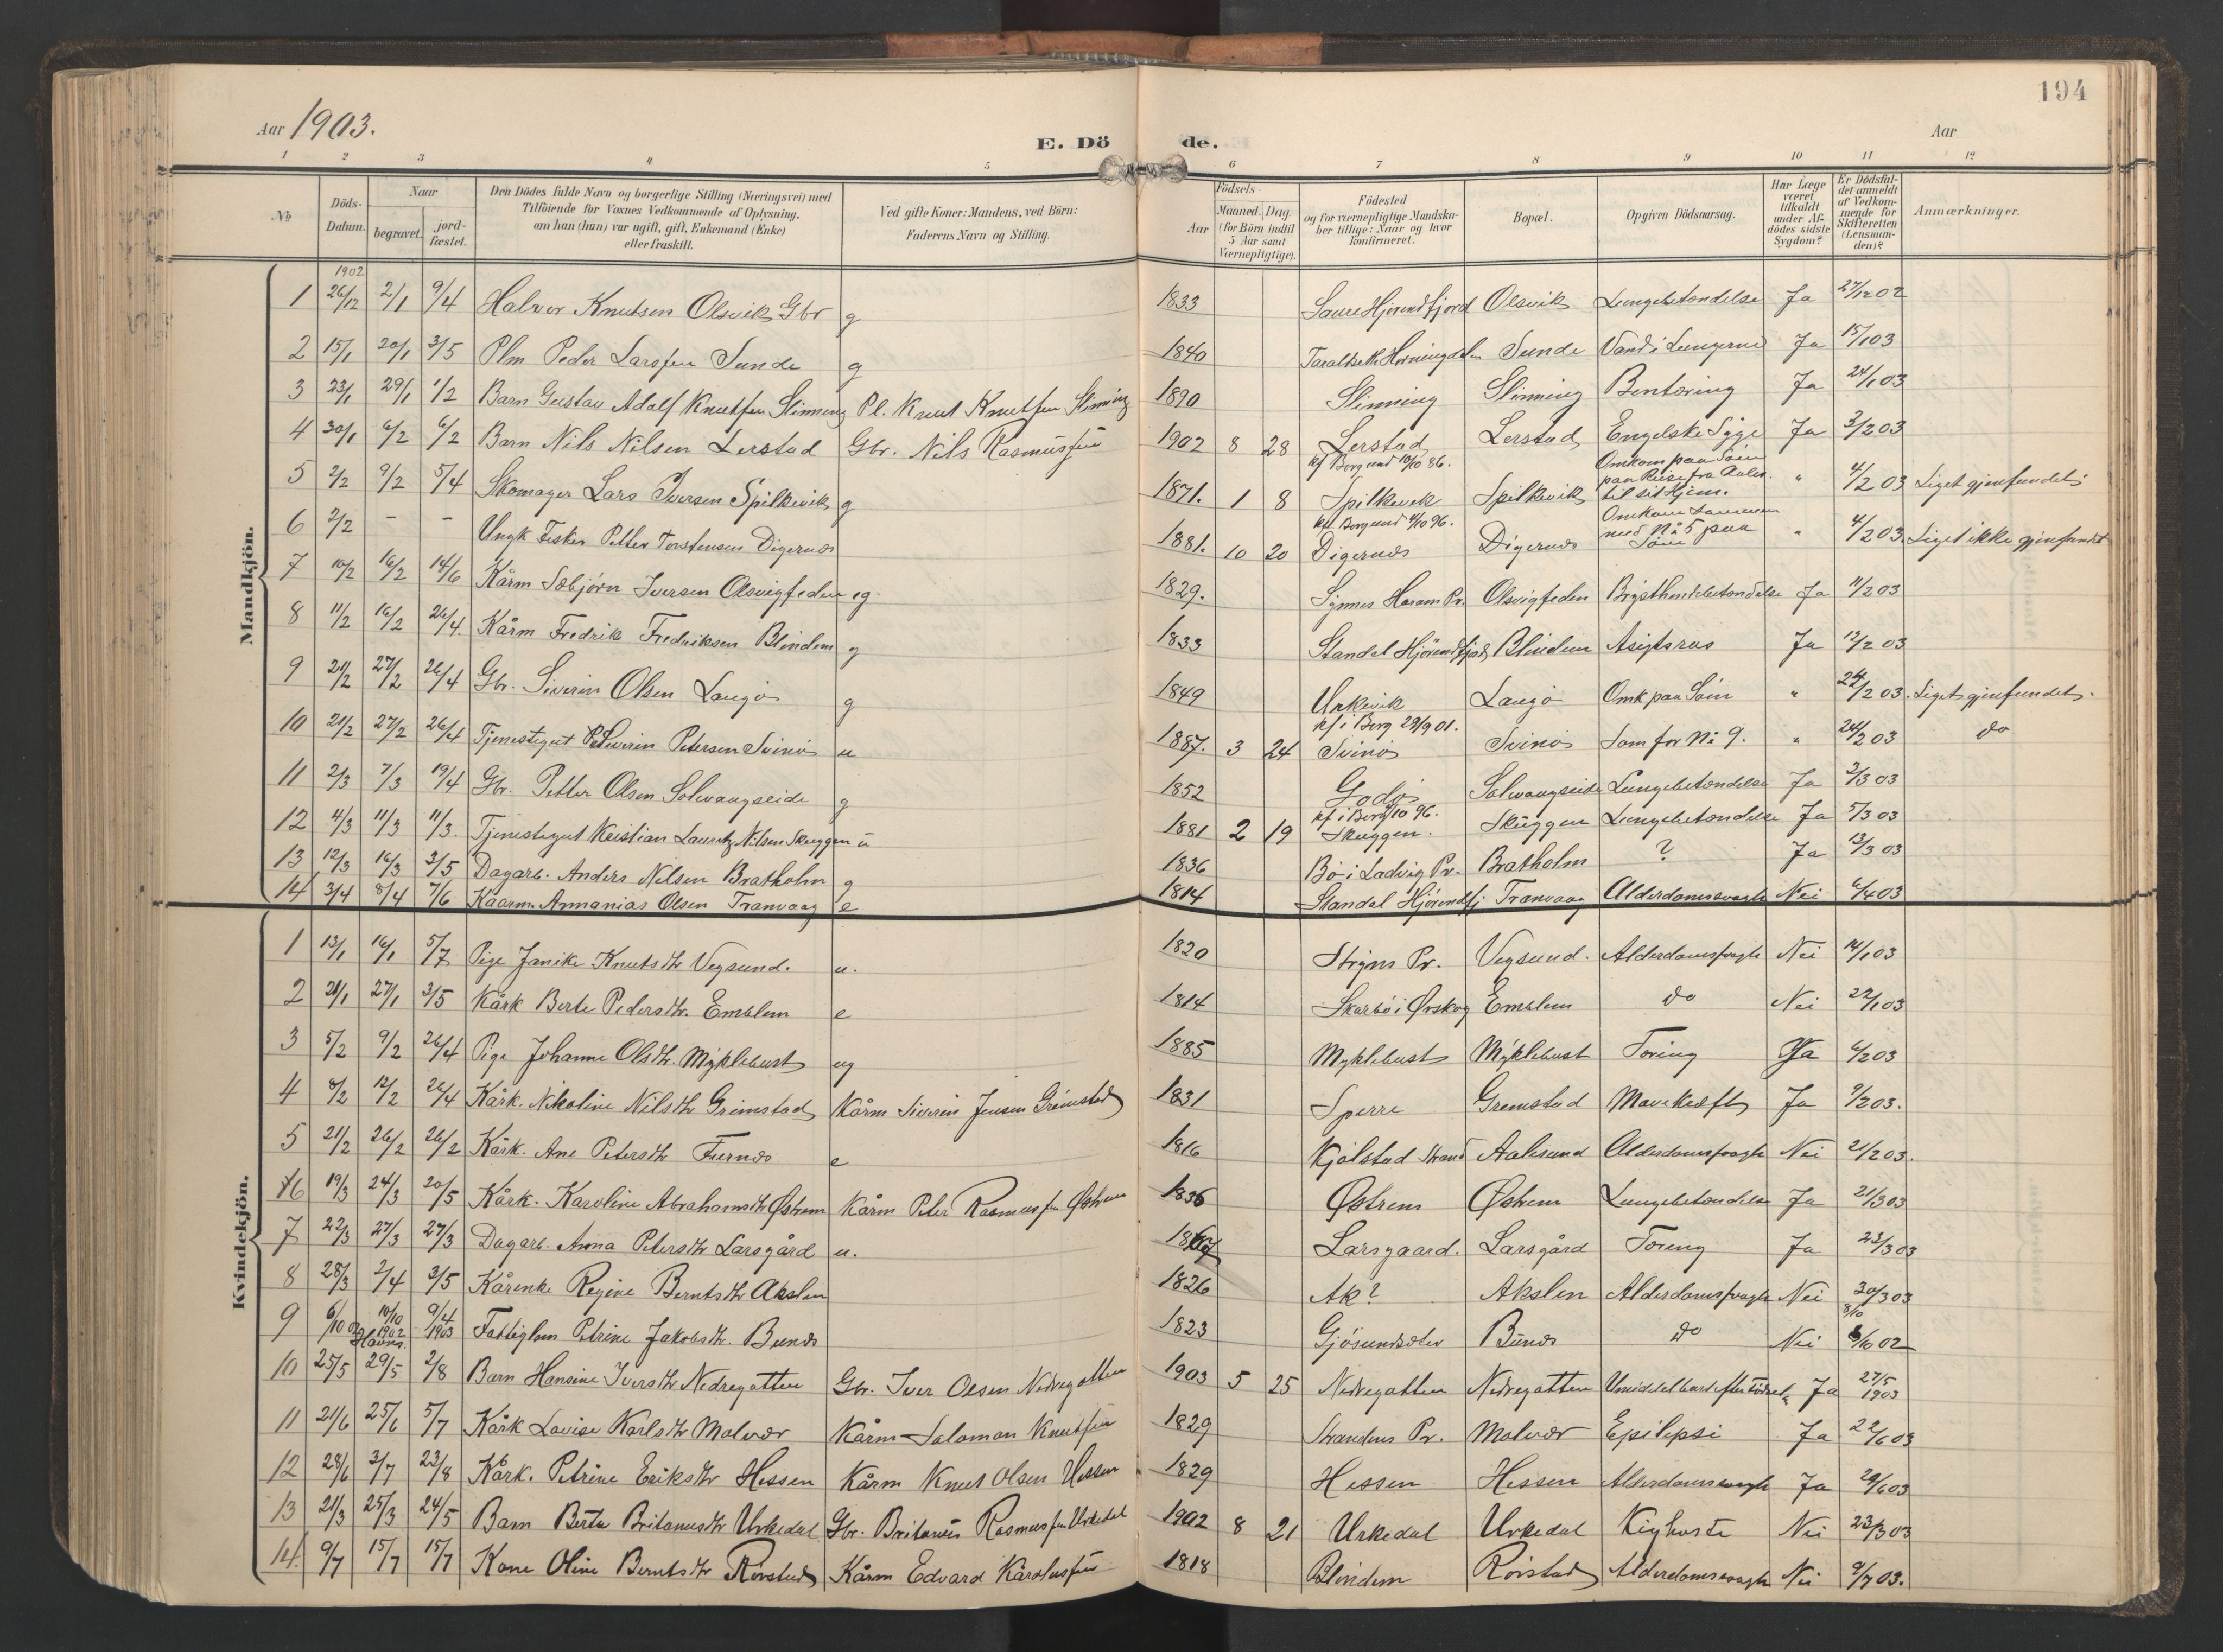 194
Aar 1903.
E. Dö de.
Aar
1 2 3 4 5 6 7 8 9 10 11 12
No
Döds-Datum.
Naar
begravet.
jord-fæstet.
Den Dödes fulde Navn og borgerlige Stilling (Næringsvei) med
Tilföiende for Voxnes Vedkommende af Oplysning,
om han (hun) var ugift, gift, Enkemand (Enke)
eller fraskilt.
Ved gifte Koner: Mandens, ved Börn:
Faderens Navn og Stilling.
Födsels-
Aar
Maaned. Dag.
(for Börn indtil
5 Aar samt
Værnepligtige).
Födested
og for værnepligtige Mandska-
ber tillige: Naar og hvor
konfirmeret.
Bopæl.
Opgiven Dödsaarsag.
Har Læge
været
tilkaldt
under Af-
dödes sidste
Sygdom?
Er Dödsfal-
det anmeldt
af Vedkom-
mende for
Skifteretten
(Lensman-
den)?
Anmærkninger.
Mandkjön.
1902
1 26/12 2/1 9/4 Halvor Knutsen Olsvik Gbr g 1833 Saure Hjorendfjord Olsvik Lungebetændelse Ja 27/12 02
2 15/1 20/1 3/5 Plm Peder Larssen Sunde g 1840 Sunde Vand i Lungerne Ja 15/1 03
3 23/1 29/1 1/2 Barn Gustav Adolf Knutsen Slinning Pl. Knut Knutsen Slinning 1890 Slinning Slinning Bentæring Ja 24/1 03
4 30/1 6/2 6/2 Barn Nils Nilsen Lerstad Gbr. Nils Rasmussen 1902 8 28 Lerstad Lerstad Engelsk Syge Ja 3/2 03
kf Borgund 10/10 86.
Omkom paa Söen
paa Reise fra Aales.
5 2/2 9/2 5/4 Skomager Lars Iversen Spilkevik g 1871. 1 8 Spilkevik Spilkevik til sit Hjem. " 4/2 03 Liget gjenfundet
kf Borgund 4/10 96.
Omkom sammen
6 2/2 - - Ungk Fisker Petter Torstensen Digernæs 1881. 10 20 Digernæs Digernæs med No 5 paa Söen " 4/2 03. Liget ikke gjenfundet
7 10/2 16/2 14/6 Kårm Sæbjörn Iversen Olsvigfeden eg 1829. Synnes Haram Pr. Olsvigfeden Brysthindebetændelse Ja 11/2 03
8 11/2 16/2 26/4. Kårm Fredrik Fredriksen Blindem g 1833 Standal Hjörendfjord Blindem Ja 12/2 03
9 21/2 27/2 26/4 Gbr. Siverin Olsen Langö g 1849 Urkevik Langö Omk paa Söen " 24/2 03. Liget gjenfundet.
kf i Borg 29/9 01.
10 21/2 27/2 26/4 Tjenestegut Severin Petersen Svinö u 1887. 3 24 Svinö Svinö Som for No 9. " 24/2 03 do
11 2/3 7/3 19/4 Gbr. Petter Olsen Solevaagseide g 1852 Godö Solevaagseide Lungebetændelse Ja 3/3 03
kf i Borg 4/10 96.
12 4/3 11/3 11/3. Tjenestegut Kristian Lauritz Nilsen Skuggen u 1881 2 19 Skuggen. Skuggen Lungebetændelse Ja 5/3 03
13 12/3 16/3 3/5 Dagarb. Anders Nilsen Bratholm g 1836 Bö i Ladvig Pr. Bratholm ? Ja 13/3 03
14 3/4 8/4 7/6 Kaarm. Annanias Olsen Tranvaag e 1814 Standal Hjörendfj Tranvaag Alderdomssvagh Nei 6/4 03
Kvindekjön.
1 13/1 16/1 5/7 Pige Janike Knutsdtr Vegsund. u. 1820 Stryns Pr. Vegsund. Alderdomssvagh Nei 14/1 03
2 21/1 27/1 3/5 Kårk Berte Pedersdtr. Emblem e 1814 Skarbö i Ørskog Emblem do Nei 22/1 03
3 5/2 9/2 26/4 Pige Johanne Olsdtr. Myklebust ug 1885 Myklebust Myklebust Tæring Ja 6/2 03
4 8/2 12/2 26/4 Kårk. Nikoline Nilsdtr Grimstad Kårm Siverin Jensen Grimstad 1831 Sperre Gremstad Mavekræft Ja 9/2 03.
5 21/2 26/2 26/2 Kårk. Ane Petersdtr Furnæs e 1816 Kjölstad Strand Aalesund Alderdomssvagh Nei 21/2 03.
6 19/3 24/3 20/5 Kårk. Karoline Abrahamsdtr Østrem Kårm Peter Rasmussen Østrem 1836 Østrem Østrem Lungebetændelse Ja 21/3 03
7 22/3 27/3 27/3 Dagarb. Anna Petersdtr Larsgård u. Larsgaard. Larsgård Tæring Ja 23/3 03
8 28/3 2/4 3/5 Kårenke Regine Berntsdtr Akslen 1826 Ak? Akslen Alderdomssvagh Nei 30/3 03
9 6/10 02 10/10 1902 9/4 1903 Fattiglem Petrine Jakobsdtr. Bunes 1823 Bunes do Nei 8/10 02
10 25/5 29/5 2/8 Barn Hansine Iversdtr Nedregotten Gbr. Iver Olsen Nedregotten 1903 5 25 Nedregotten Nedregotten Umiddelbart efter Födsel Ja 27/5 1903
11 21/6 25/6 5/7 Kårk Lovise Karlsdtr Malvær Kårm Salomon Knutsen 1829 Strandens Pr. Malvær Epilepsi Ja 22/6 03
12 28/6 3/7 23/8 Kårk. Petrine Eriksdtr Hessen Kårm Knut Olsen Hessen 1829 Hessen Hessen Alderdomssvagh Ja 29/6 03
13 21/3 25/3 24/5 Barn Berta Britanusdtr Urkedal Gbr. Britanus Rasmussen Urkedal 1902 8 21 Urkedal Urkedal Kighoste Nei 23/3 03
14. 9/7 15/7 15/7 Kone Oline Berntsdtr Rörstad Kårm Edvard Karolussen 1818 Blindem Rörstad Alderdomssvagh Nei 9/7 03.